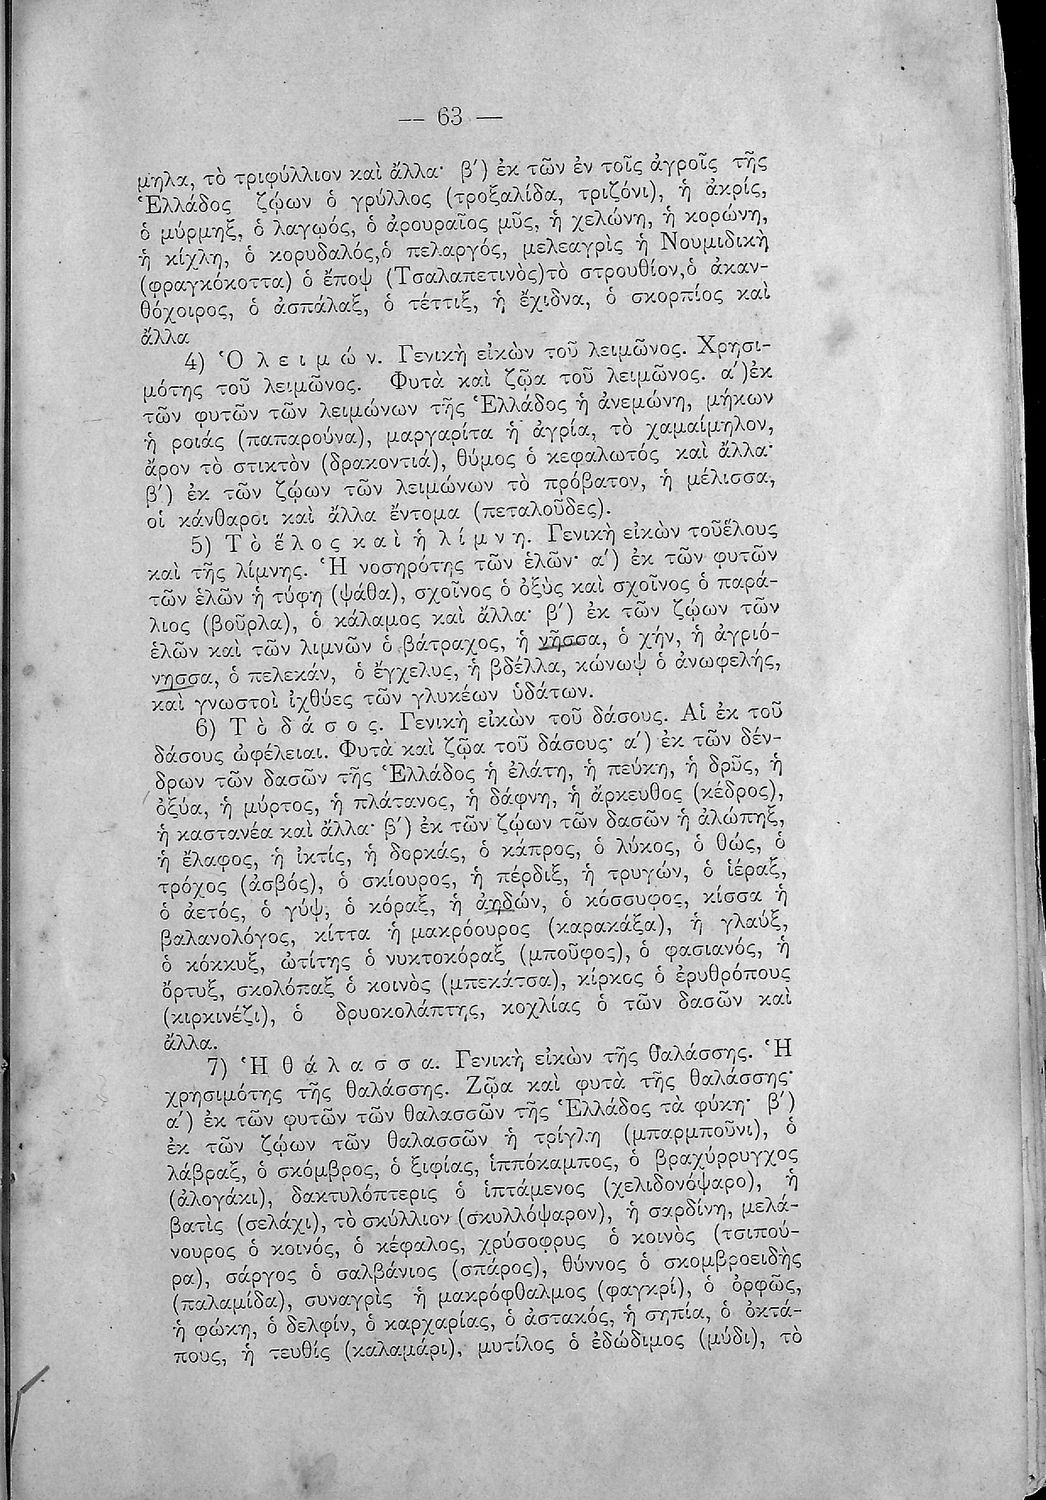 — 63 —
μηλα, τὸ τριφύλλιον καὶ ἄλλα· β΄) ἐκ τῶν ἐν τοῖς ἀγροῖς τῆς
Ἑλλάδος ζῴων ὁ γρύλλος (τροξαλίδα, τριζόνι), ἡ ἀκρίς,
ὁ μύρμηξ, ὁ λαγωός, ὁ ἀρουραῖος μῦς, ἡ χελώνη, ἡ κορώνη,
ἡ κίχλη, ὁ κορυδαλός,ὁ πελαργός, μελεαγρὶς ἡ Νουμιδικὴ
(φραγκόκοττα) ὁ ἔποψ (Τσαλαπετινὸς)τὸ στρουθίον,ὁ ἀκαν-
θόχοιρος, ὁ ἀσπάλαξ, ὁ τέττιξ, ἡ ἔχιδνα, ὁ σκορπίος καὶ
ἄλλα
4) Ὁ λειμών. Γενικὴ εἰκὼν τοῦ λειμῶνος. Χρησι-
μότης τοῦ λειμῶνος. Φυτὰ καὶ ζῷα τοῦ λειμῶνος. α΄)ἐκ
τῶν φυτῶν τῶν λειμώνων τῆς Ἑλλάδος ἡ ἀνεμώνη, μήκων
ἡ ροιάς (παπαρούνα), μαργαρίτα ἡ ἀγρία, τὸ χαμαίμηλον,
ἄρον τὸ στικτὸν (δρακοντιά), θύμος ὁ κεφαλωτός καὶ ἄλλα·
β΄) ἐκ τῶν ζῴων τῶν λειμώνων τὸ πρόβατον, ἡ μέλισσα,
οἱ κάνθαροι καὶ ἄλλα ἔντομα (πεταλοῦδες).
5) Τὸ ἕλος καὶ ἡ λίμνη. Γενικὴ εἰκὼν τοῦἕλους
καὶ τῆς λίμνης. Ἡ νοσηρότης τῶν ἑλῶν· α΄) ἐκ τῶν φυτῶν
τῶν ἑλῶν ἡ τύφη (ψάθα), σχοῖνος ὁ ὀξὺς καὶ σχοῖνος ὁ παρά-
λιος (βοῦρλα), ὁ κάλαμος καὶ ἄλλα· β΄) ἐκ τῶν ζῴων τῶν
ἑλῶν καὶ τῶν λιμνῶν ὁ βάτραχος, ἡ νῆσσα, ὁ χήν, ἡ ἀγριό-
νησσα, ὁ πελεκάν, ὁ ἔγχελυς, ἡ βδέλλα, κώνωψ ὁ ἀνωφελής,
καὶ γνωστοὶ ἰχθύες τῶν γλυκέων ὑδάτων.
6) Τὸ δάσος. Γενικὴ εἰκὼν τοῦ δάσους. Αἱ ἐκ τοῦ
δάσους ὠφέλειαι. Φυτὰ καὶ ζῷα τοῦ δάσους· α΄) ἐκ τῶν δέν-
δρων τῶν δασῶν τῆς Ἑλλάδος ἡ ἐλάτη, ἡ πεύκη, ἡ δρῦς, ἡ
ὀξύα, ἡ μύρτος, ἡ πλάτανος, ἡ δάφνη, ἡ ἄρκευθος (κέδρος),
ἡ καστανέα καὶ ἄλλα· β΄) ἐκ τῶν ζῴων τῶν δασῶν ἡ ἀλώπηξ,
ἡ ἔλαφος, ἡ ἰκτίς, ἡ δορκάς, ὁ κάπρος, ὁ λύκος, ὁ θώς, ὁ
τρόχος (ἀσβός), ὁ σκίουρος, ἡ πέρδιξ, ἡ τρυγών, ὁ ἱέραξ,
ὁ ἀετός, ὁ γύψ, ὁ κόραξ, ἡ ἀηδών, ὁ κόσσυφος, κίσσα ἡ
βαλανολόγος, κίττα ἡ μακρόουρος (καρακάξα), ἡ γλαύξ,
ὁ κόκκυξ, ὠτίτης ὁ νυκτοκόραξ (μποῦφος), ὁ φασιανός, ἡ
ὄρτυξ, σκολόπαξ ὁ κοινὸς (μπεκάτσα), κίρκος ὁ ἐρυθρόπους
(κιρκινέζι), ὁ δρυοκολάπτης, κοχλίας ὁ τῶν δασῶν καὶ
ἄλλα.
7) Ἡ θάλασσα. Γενικὴ εἰκὼν τῆς θαλάσσης. Ἡ
χρησιμότης τῆς θαλάσσης. Ζῷα καὶ φυτὰ τῆς θαλάσσης·
α΄) ἐκ τῶν φυτῶν τῶν θαλασσῶν τῆς Ἑλλάδος τὰ φύκη· β΄)
ἐκ τῶν ζῴων τῶν θαλασσῶν ἡ τρίγλη (μπαρμποῦνι), ὁ
λάβραξ, ὁ σκόμβρος, ὁ ξιφίας, ἱππόκαμπος, ὁ βραχύρρυγχος
(ἀλογάκι), δακτυλόπτερις ὁ ἱπτάμενος (χελιδονόψαρο), ἡ
βατὶς (σελάχι), τὸ σκύλλιον (σκυλλόψαρον), ἡ σαρδίνη, μελά-
νουρος ὁ κοινός, ὁ κέφαλος, χρύσοφρυς ὁ κοινὸς (τσιπού-
ρα), σάργος ὁ σαλβάνιος (σπάρος), θύννος ὁ σκομβροειδὴς
(παλαμίδα), συναγρὶς ἡ μακρόφθαλμος (φαγκρί), ὁ ὀρφῶς,
ἡ φώκη, ὁ δελφίν, ὁ καρχαρίας, ὁ ἀστακός, ἡ σηπία, ὁ ὀκτά-
πους, ἡ τευθίς (καλαμάρι), μυτίλος ὁ ἐδώδιμος (μύδι), τὸ